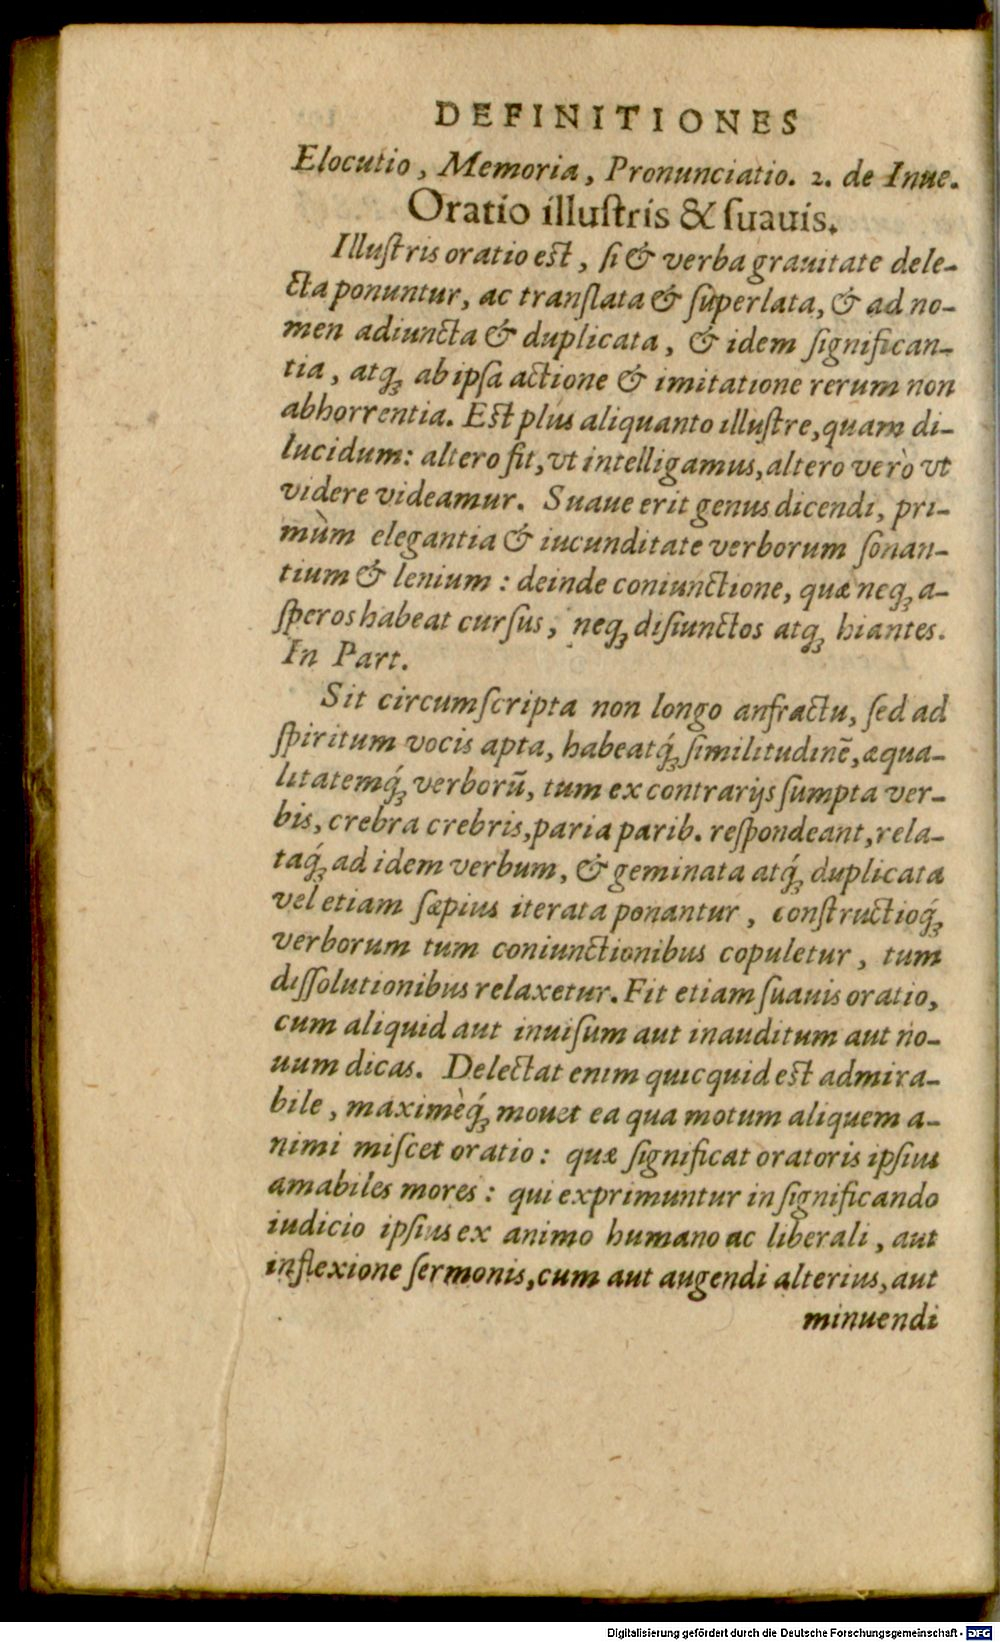 DEFINITIONES
Elocutio, Memoria, Pronunciatio. 2. de Inue.
Oratio illuſtris & ſuauis.
Illuſtris oratio eſt, ſi & verba grauitate dele-
cta ponuntur, ac tranſlata & ſuperlata, & ad no-
men adiuncta & duplicata, & idem ſignifican-
tia, atq; ab ipſa actione & imitatione rerum non
abhorrentia. Eſt plus aliquanto illuſtre, quam di-
lucidum: altero fit, vt intelligamus, altero verò vt
videre videamur. Suaue erit genus dicendi, pri-
mùm elegantia & iucunditate verborum ſonan-
tium & lenium: deinde coniunctione, quæ neq; a-
ſperos habeat curſus, neq; diſiunctos atq; hiantes.
In Part.
Sit circumſcripta non longo anfractu, ſed ad
ſpiritum vocis apta, habeatq́; ſimilitudinē, æqua-
litatemq́; verborū, tum ex contrarijs ſumpta ver-
bis, crebra crebris, paria parib. reſpondeant, rela-
taq́; ad idem verbum, & geminata atq́; duplicata
vel etiam ſæpius iterata ponantur, conſtructioq́;
verborum tum coniunctionibus copuletur, tum
diſſolutionibus relaxetur. Fit etiam ſuauis oratio,
cum aliquid aut inuiſum aut inauditum aut no-
uum dicas. Delectat enim quicquid eſt admira-
bile, maximèq́; mouet ea qua motum aliquem a-
nimi miſcet oratio: quæ ſignificat oratoris ipſius
amabiles mores: qui exprimuntur in ſignificando
iudicio ipſius ex animo humano ac liberali, aut
inflexione ſermonis, cum aut augendi alterius, aut
minuendi
Digitalisierung gefördert durch die Deutsche Forschungsgemeinschaft - DFG